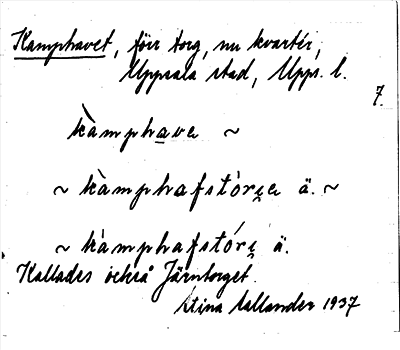 Kamphavet, förr torg, nu kvarter,
Uppsala stad, Upps. l.
7.
kàmphave ~
~ kàmphafstórɛ̣e ä. ~
~ kàmphafstórɛ̣ ä.
Kallades också Järntorget.
Stina Hallander 1937